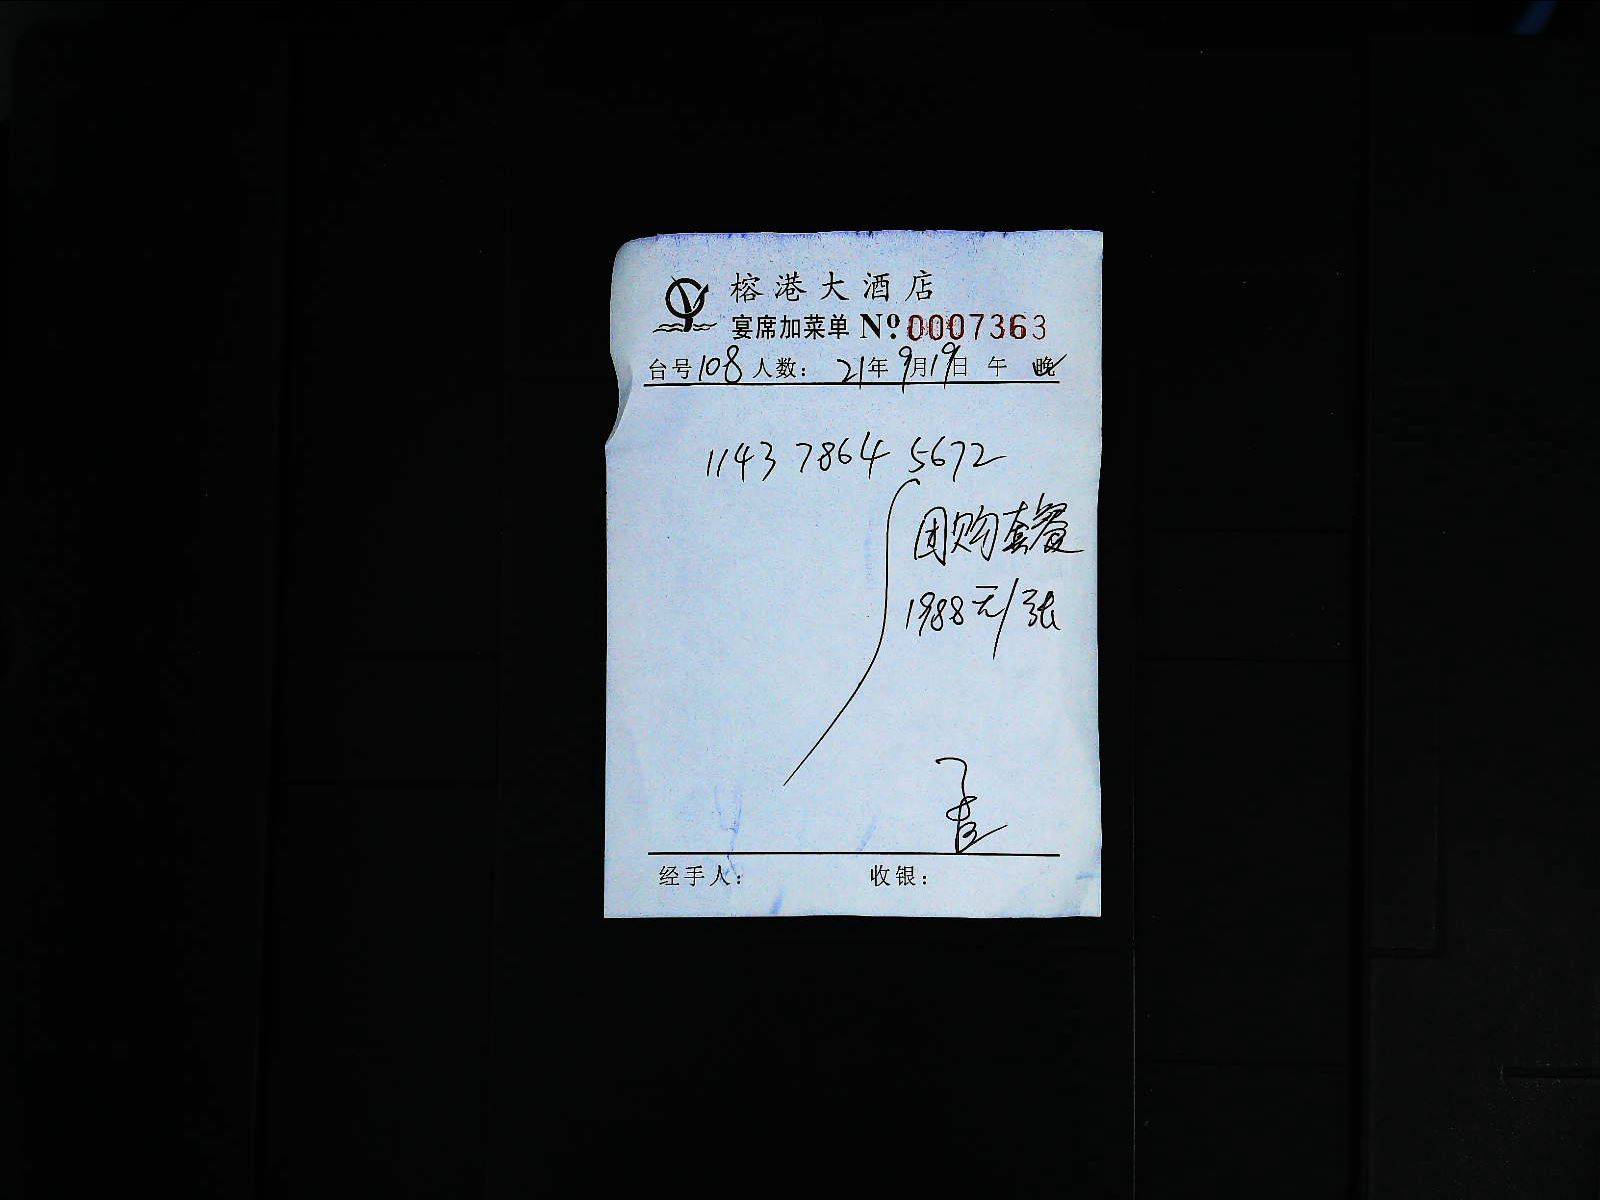 榕港大酒店
宴席加菜单 Nº:0007363
台号108人数: 21年9月19日 午 晚
1143 7864 5672
团购套餐
1988元/张
经手人: 收银: